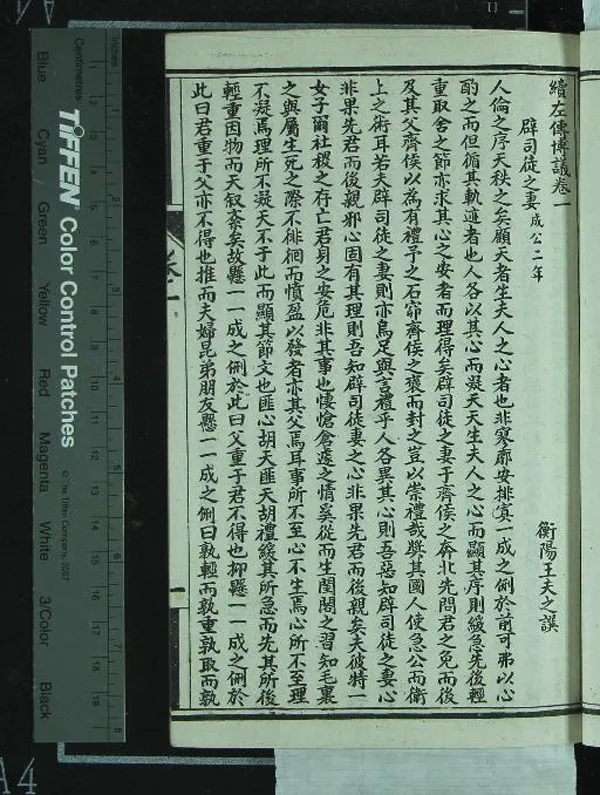 續左傳博議卷一
衡陽王夫之譔
辟司徒之妻成公二年
人倫之序天秩之矣顧天者生夫人之心者也非寥廓安排寘一成之例於前可弗以心
酌之而但循其軌迹者也人各以其心而凝天天生夫人之心而顯其序則緩急先後輕
重取舍之節亦求其心之安者而理得矣辟司徒之妻于齊侯之奔北先問君之免而後
及其父齊侯以為有禮予之石窌齊侯之褒而封之豈以崇禮哉獎其國人使急公而衛
上之術耳若夫辟司徒之妻則亦烏足與言禮乎人各異其心則吾惡知辟司徒之妻心
非果先君而後親邪心固有其理則吾知辟司徒妻之心非果先君而後親矣夫彼特一
女子爾社稷之存亡君身之安危非其事也悽愴倉遽之情奚從而生閨閤之習知毛裏
之與屬生死之際不徘徊而憤盈以發者亦其父焉耳事所不至心不生焉心所不至理
不凝焉理所不凝天不于此而顯其節文也匪心胡天匪天胡禮緩其所急而先其所後
輕重因物而天叙紊矣故懸一一成之例於此曰父重于君不得也抑懸一一成之例於
此曰君重于父亦不得也推而夫婦昆弟朋友懸一一成之例曰孰輕而孰重孰取而孰
卷一
Inches
Centimetres
TIFFEN Color Control Patches
© The Tiffen Company, 2007
Blue
Cyan
Green
Yellow
Red
Magenta
White
3/Color
Black
A4